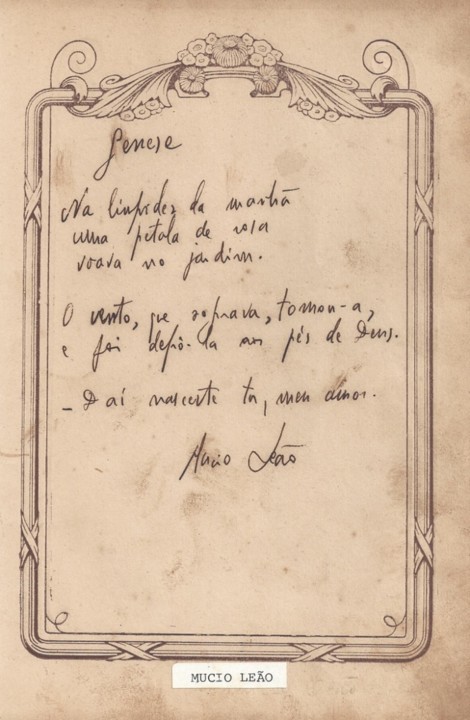 Genese
Na limpidez da manhã
uma pétala de rosa
voava no jardim.
O vento, que soprava, tomou-a,
e foi depô-la aos pés de Deus.
- Daí nasceste tu, meu amor.
Mucio Leão
MUCIO LEÃO